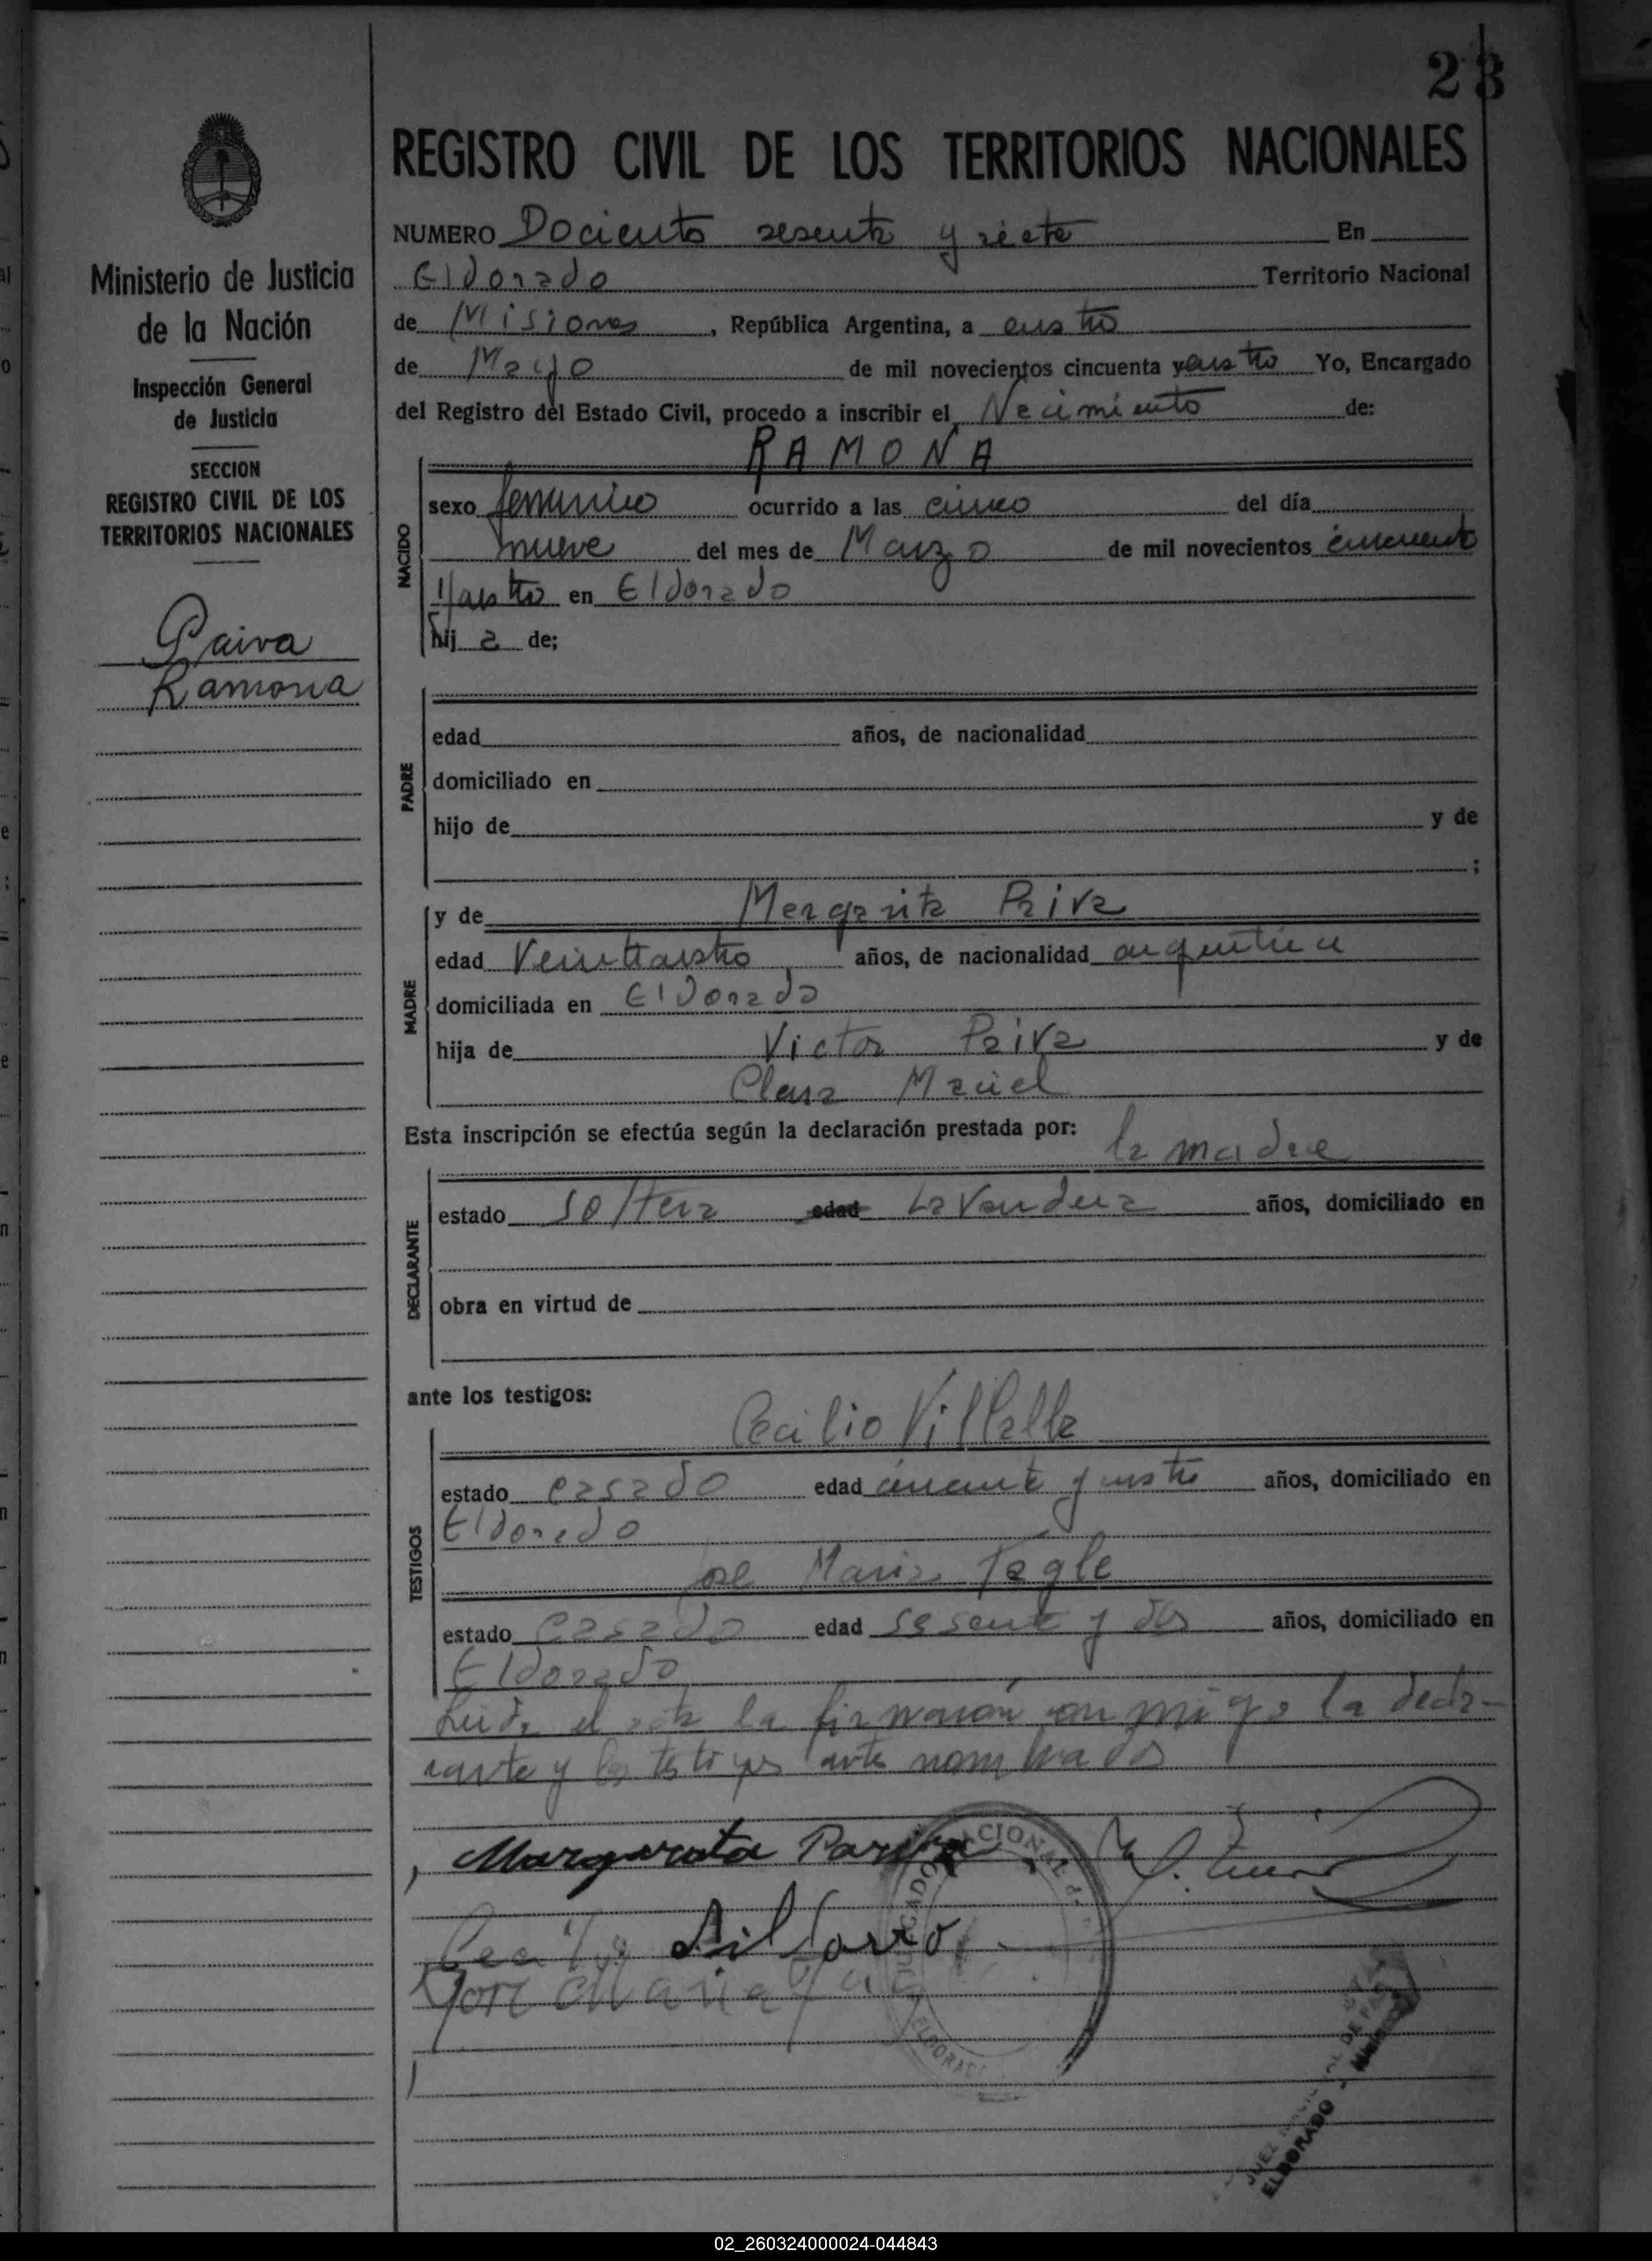 23
REGISTRO CIVIL DE LOS TERRITORIOS NACIONALES
Ministerio de Justicia
de la Nación
Inspección General
de Justicia
SECCION
REGISTRO CIVIL DE LOS
TERRITORIOS NACIONALES
Paiva
Ramona
NUMERO Dociento sesenta y siete En
Eldorado Territorio Nacional
de Misiones, República Argentina, a cuatro
de Mayo de mil novecientos cincuenta y cuatro Yo, Encargado
del Registro del Estado Civil, procedo a inscribir el Nacimiento de:
RAMONA
NACIDO
sexo femenino ocurrido a las cinco del día
nueve del mes de Marzo de mil novecientos cincuenta
y cuatro en Eldorado
hij a de;
PADRE
edad años, de nacionalidad
domiciliado en
hijo de y de
;
MADRE
y de Margarita Paiva
edad Veinticuatro años, de nacionalidad argentina
domiciliada en Eldorado
hija de Victor Paiva y de
Clara Maciel
Esta inscripción se efectúa según la declaración prestada por: la madre
DECLARANTE
estado soltera edad Lavandera años, domiciliado en
obra en virtud de
ante los testigos:
TESTIGOS
Cecilio Villalba
estado casado edad cincuenta y cuatro años, domiciliado en
Eldorado
Jose Maria Tagle
estado casado edad sesenta y dos años, domiciliado en
Eldorado
Leida el acta la firmaron conmigo la decla-
rante y los testigos ante nombrados
Margarata Pariva
Jose Maria
NACIONAL
ELDORADO
JUEZ DE PAZ
ELDORADO
02_260324000024-044843